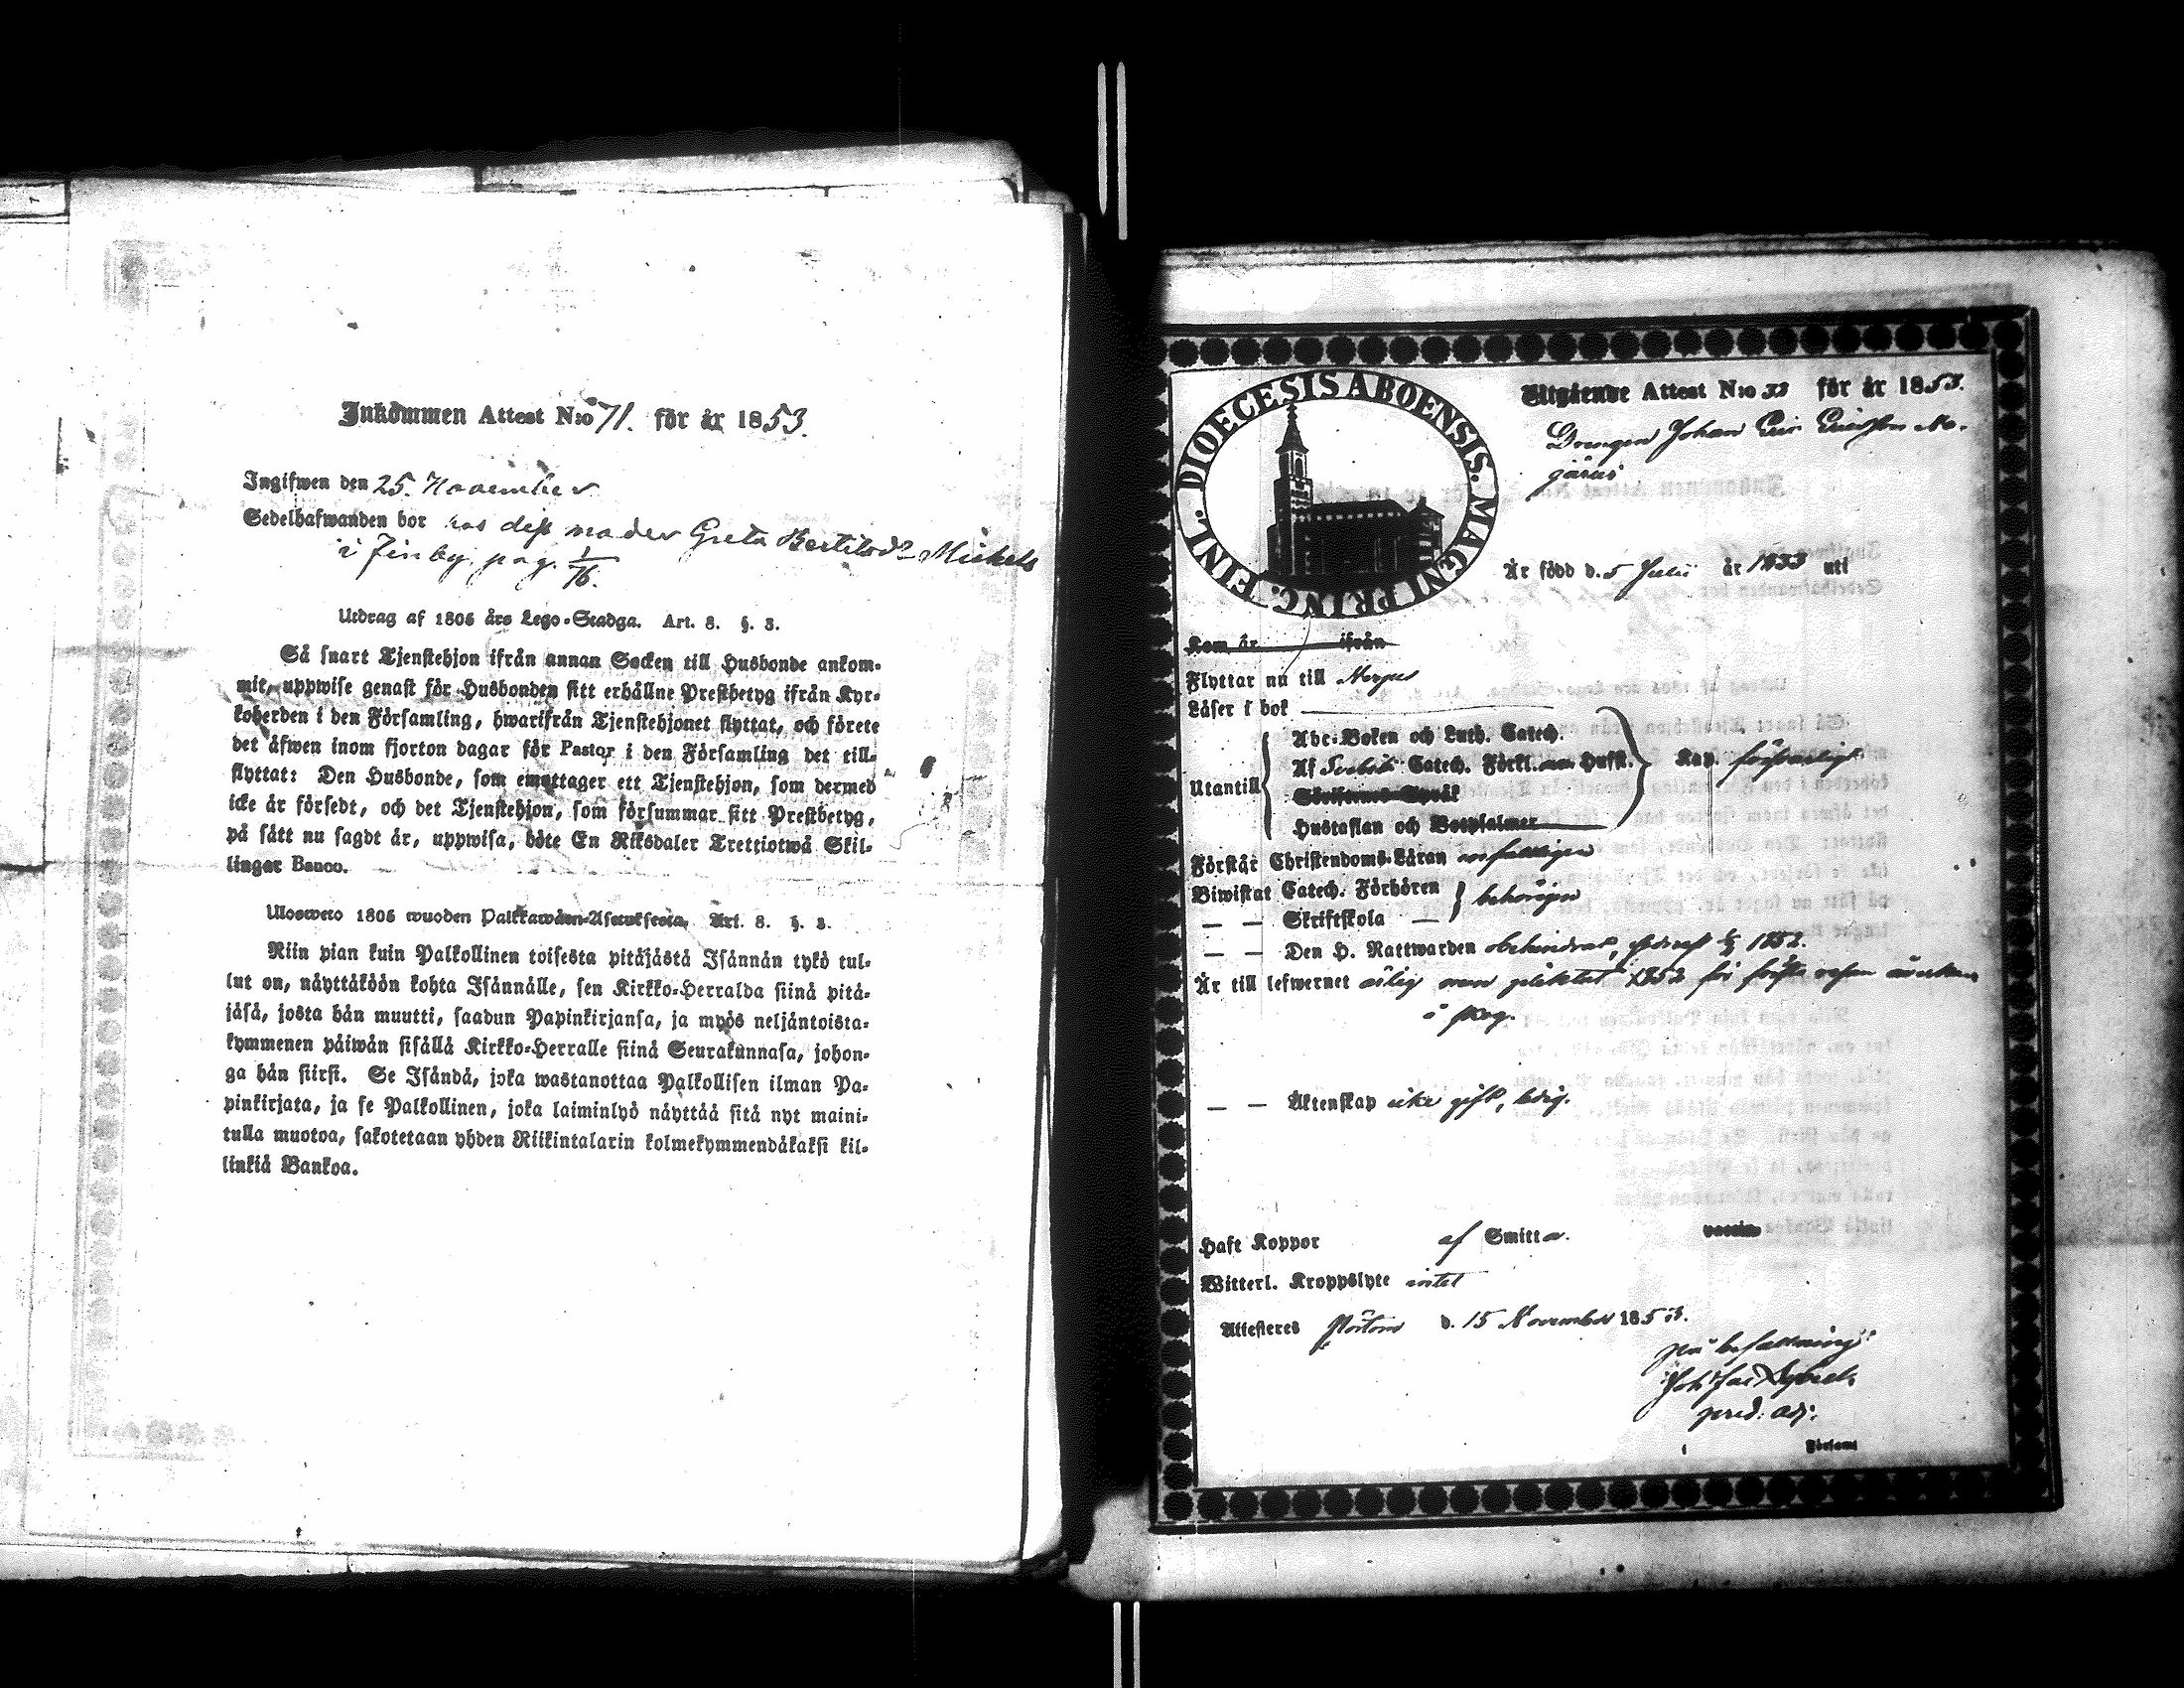 Inkommen Attest N:o 71. för år 1853.
Ingifwen den 25. November
Sedelhafwanden bor hos dess moder Greta Bertilsdr Michels
i Finby. pag. 1/76.
Utdrag af 1805 års Lego-Stadga. Art. 8. §. 3.
Så snart Tjenstehjon ifrån annan Socken till Husbonde ankom-
mit, uppwise genast för Husbonden sitt erhållne Prestbetyg ifrån Kyr-
koherden i den Församling, hwarifrån Tjenstehjonet flyttat, och förete
det äfwen inom fjorton dagar för Pastor i den Församling det till-
flyttat: Den Husbonde, som emottager ett Tjenstehjon, som dermed
icke är försedt, och det Tjenstehjon, som försummar sitt Prestbetyg,
på sätt nu sagdt är, uppwisa, böte En Riksdaler Trettiotwå Skil-
lingar Banco.
Ulosweto 1805 wuoden Palkkawäen-Asetuksesta, Art. 8. §. 3.
Niin pian kuin Palkollinen toisesta pitäjästä Isännän tykö tul-
lut on, näyttäköön kohta Isännälle, sen Kirkko-Herralda siinä pitä-
jäsä, josta hän muutti, saadun Papinkirjansa, ja myös neljäntoista-
kymmenen päiwän sisällä Kirkko-Herralle siinä Seurakunnasa, johon-
ga hän siirsi. Se Isändä, joka wastanottaa Palkollisen ilman Pa-
pinkirjata, ja se Palkollinen, joka laiminlyö näyttää sitä nyt maini-
tulla muotoa, sakotetaan yhden Riikintalarin kolmekymmendäkaksi kil-
linkiä Bankoa.
DIOECESIS ABOENSIS. MAGNI PRINC. FINL.
Utgående Attest N:o 33 för år 1853.
Drengen Johan Eric Ericsson
Är född d. 5 Julii år 1833 uti
Kom år ifrån
Flyttar nu till Nerpes
Läser i bok
Utantill
Abc-Boken och Luth. Catech.
Af Svebilii Catech. Förkl. Hufst. Kap. försvarligt
Hustaflan och Botpsalmer
Förstår Christendoms-Läran enfaldigen
Biwistat Catech. Förhören behörigen
— — Skriftskola —
— — Den H. Nattwarden obehindrat, 1852.
Är till lefwernet ärlig men pliktat 1852 för första resan åverkan
å skog.
— — Äktenskap icke gift, ledig.
Haft Koppor af Smitta.
Witterl. Kroppslyte intet
Attesteres Pörtom d. 15 November 1853.
på befallning:
pred. adj.
i Församl